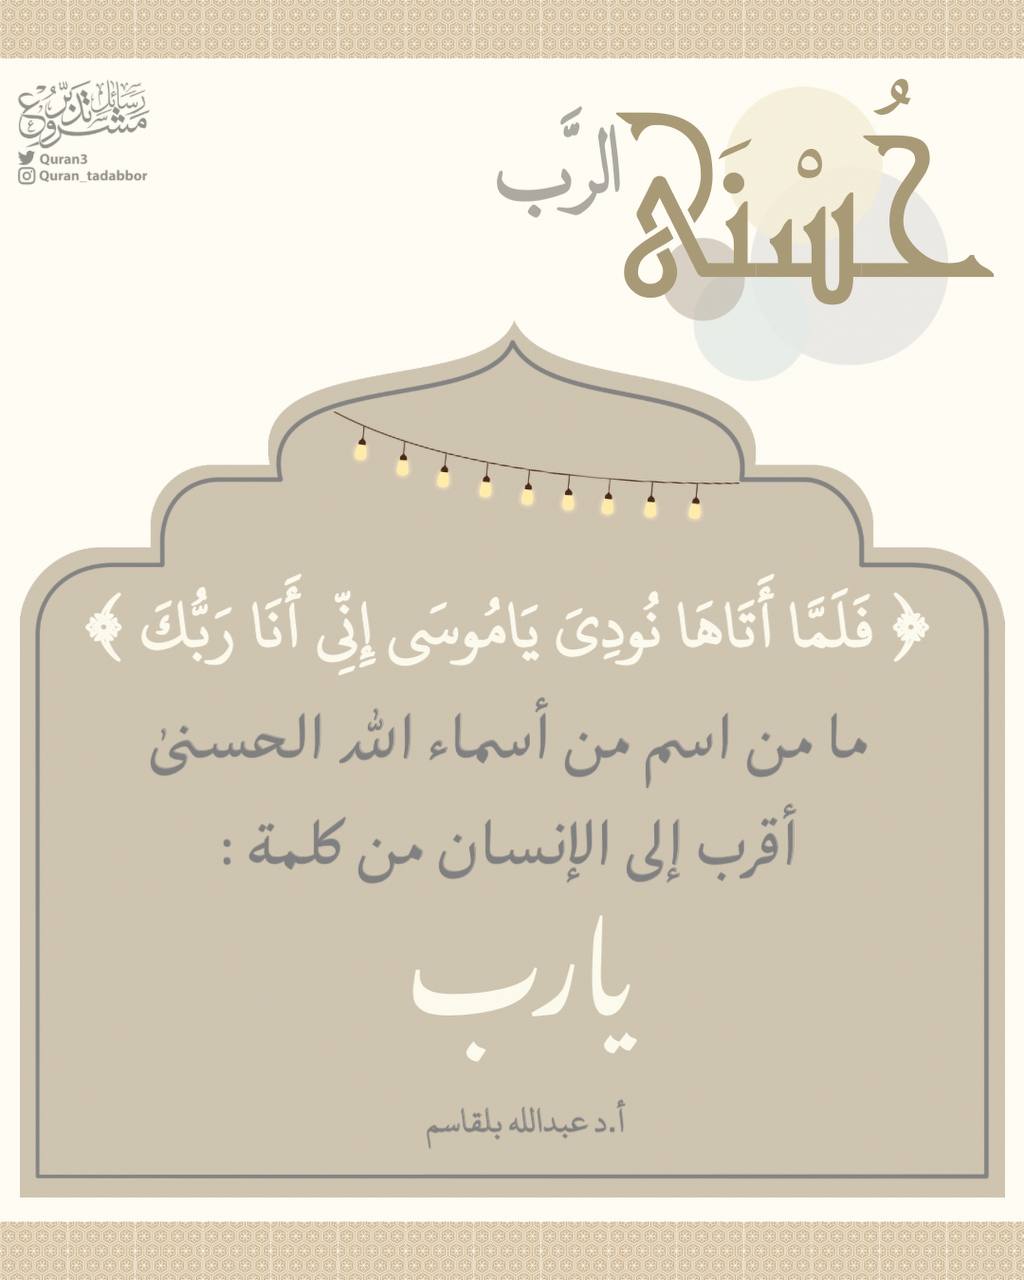 حُسْنَى
الرَّب
مشروع رسائل تدبر
Quran3
Quran_tadabbor
﴿ فَلَمَّا أَتَاهَا نُودِىَ يَامُوسَى إِنِّي أَنَا رَبُّكَ ﴾
ما من اسم من أسماء الله الحسنىٰ
أقرب إلى الإنسان من كلمة :
يارب
أ.د عبدالله بلقاسم